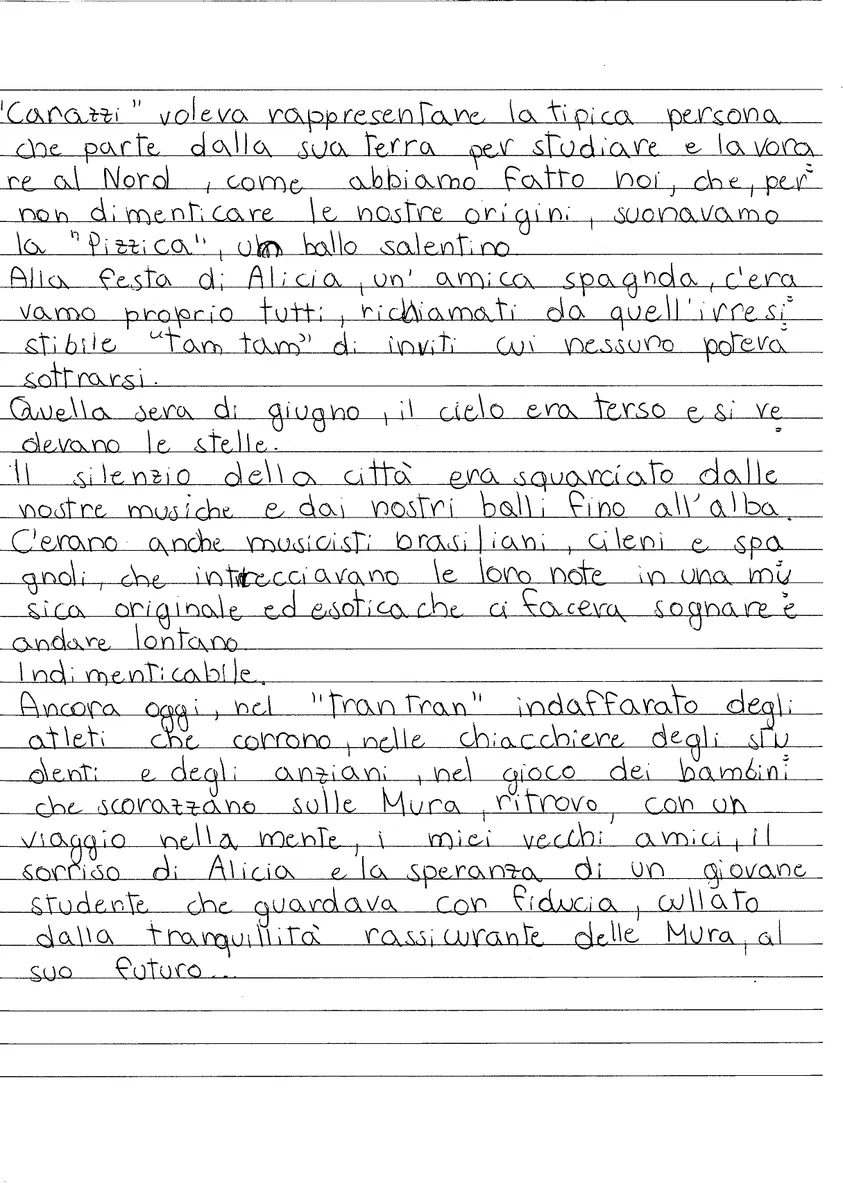 "Carazzi" voleva rappresentare la tipica persona
che parte dalla sua terra per studiare e lavora
re al Nord, come abbiamo fatto noi, che, per
non dimenticare le nostre origini, suonavamo
la "Pizzica", un ballo salentino
Alla festa di Alicia, un' amica spagnola, c'era
vamo proprio tutti, richiamati da quell'irresi=
stibile "tam tam" di inviti cui nessuno poteva
sottrarsi.
Quella sera di giugno, il cielo era terso e si ve=
devano le stelle.
Il silenzio della città era squarciato dalle
nostre musiche e dai nostri balli fino all'alba.
C'erano anche musicisti brasiliani, cileni e spa
gnoli, che intrecciavano le loro note in una mu=
sica originale ed esotica che ci faceva sognare e
andare lontano
Indimenticabile.
Ancora oggi, nel "Tran Tran" indaffarato degli
atleti che corrono, nelle chiacchiere degli stu
denti e degli anziani, nel gioco dei bambini
che scorazzano sulle Mura, ritrovo, con un
viaggio nella mente, i miei vecchi amici, il
sorriso di Alicia e la speranza di un giovane
studente che guardava con fiducia, cullato
dalla tranquillità rassicurante delle Mura, al
suo futuro...